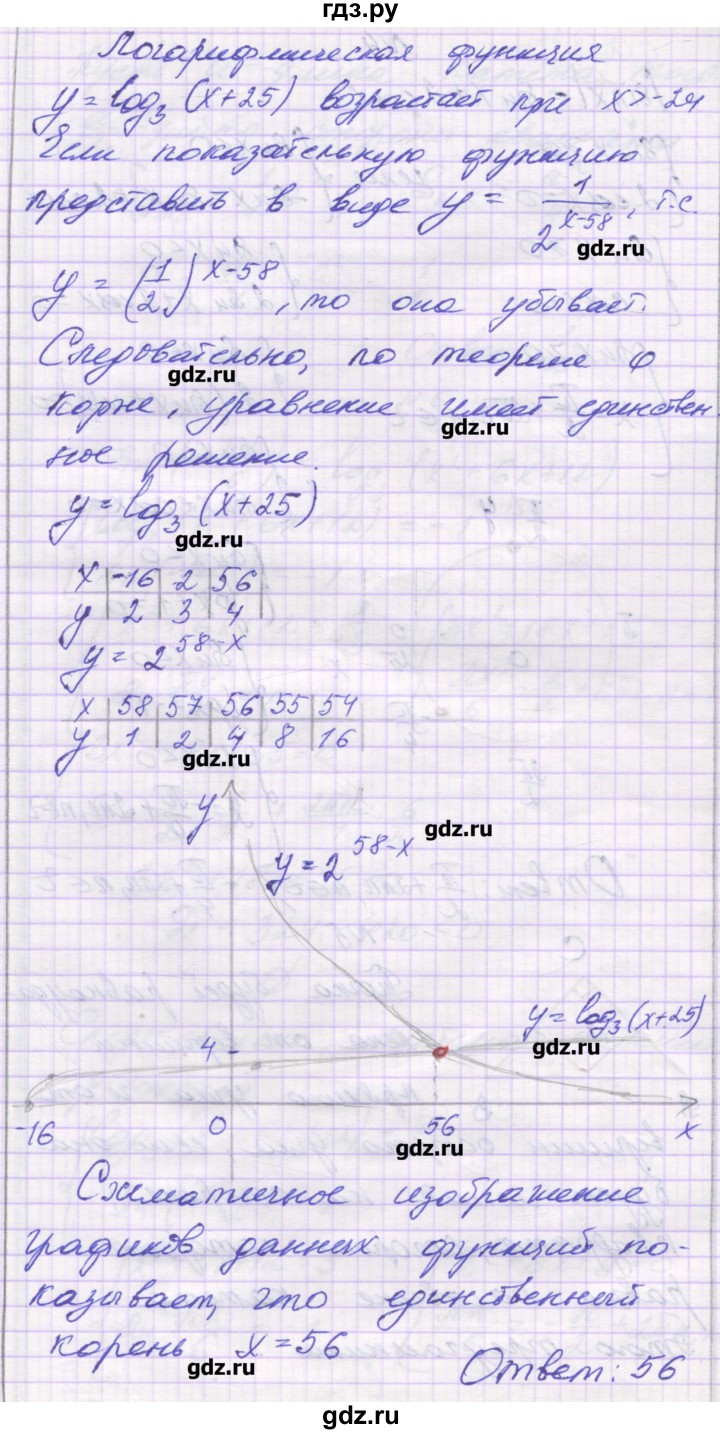 гдз.ру
Логарифмическая функция
y = log₃ (x+25) возрастает при x > -24
Если показательную функцию
представить в виде y = 1/2^(x-58), т.е.
gdz.ru
y = (1/2)^(x-58), то она убывает.
Следовательно, по теореме о
gdz.ru
корне, уравнение имеет единствен
gdz.ru
ное решение.
y = log₃ (x+25)
gdz.ru
x | -16 | 2 | 56
y | 2 | 3 | 4
y = 2^(58-x)
x | 58 | 57 | 56 | 55 | 54
y | 1 | 2 | 4 | 8 | 16
gdz.ru
y
gdz.ru
y = 2^(58-x)
y = log₃ (x+25)
gdz.ru
4
-16 0 56 x
gdz.ru
Схематичное изображение
графиков данных функций по-
казывает, что единственный
корень x = 56
gdz.ru
Ответ: 56
gdz.ru